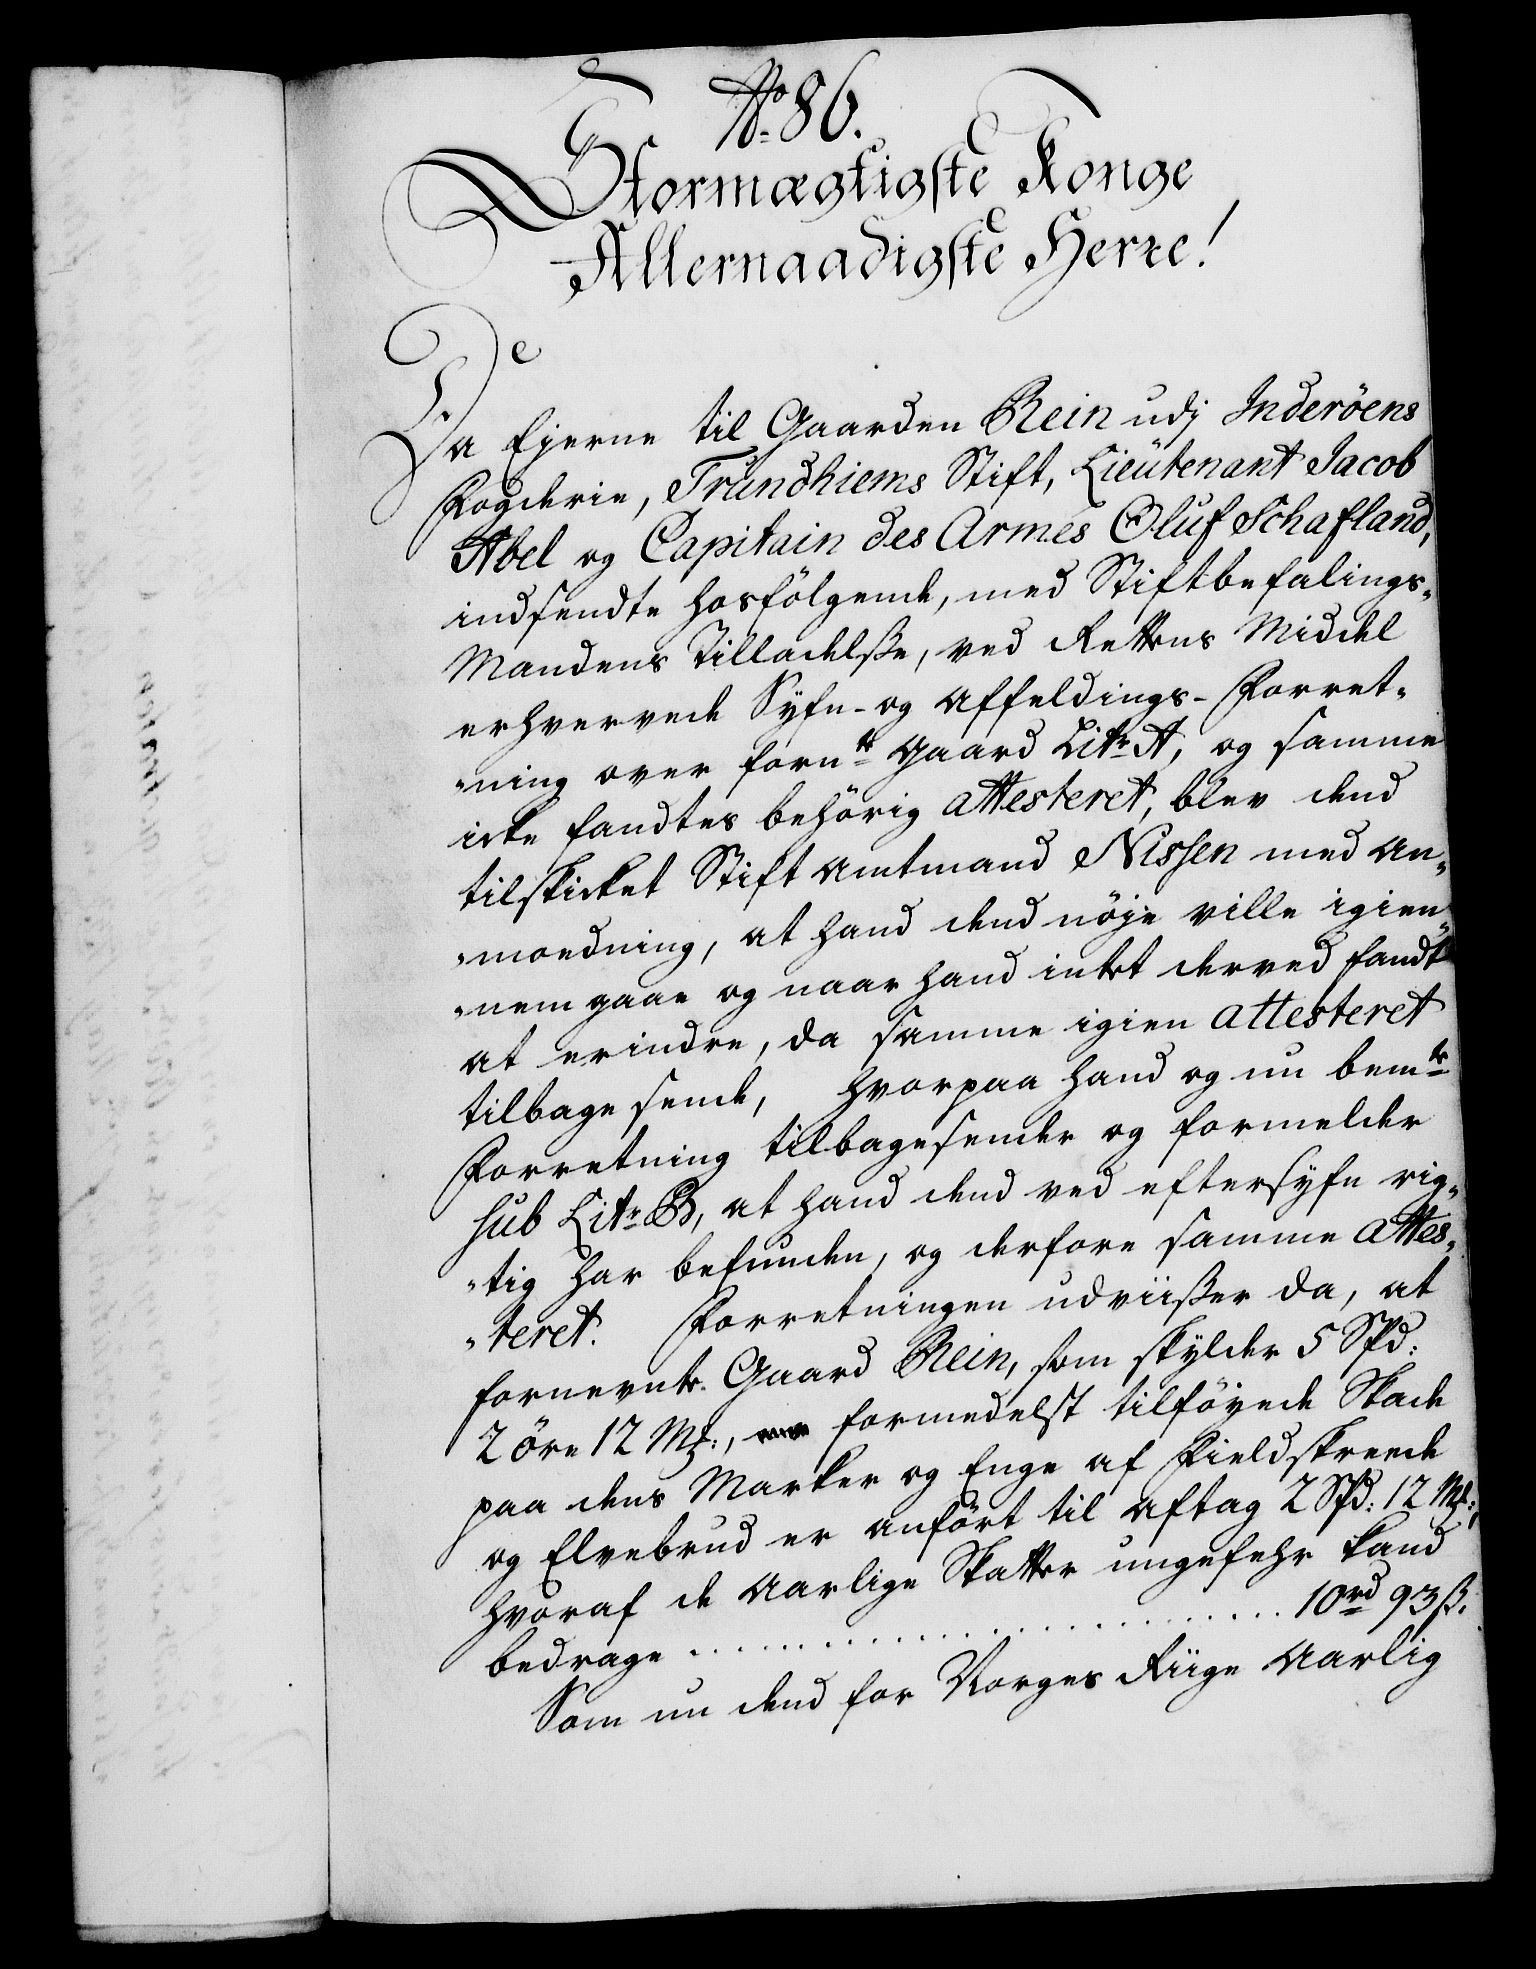 No 86.
Stormægtigste Konge
Allernaadigste Herre!
Da Ejerne til Gaarden Rein udj Inderöens
Fogderie, Trundhiems Stift, Lieutenant Jacob
Abel og Capitain des Armes Oluf Schafland,
indsendte hosfölgende, med Stiftbefalings-
Mandens Tilladelsse, ved Rettens Middel
erhvervede Syfn- og Affeldings-Forret-
-ning over fornte Gaard Litr A, og samme
icke fandtes behörig attesteret, blev dend
tilskicket Stift Amtmand Nissen med An-
-moedning, at hand dend nöje ville igien-
-nem gaae og naar hand intet derved fandt
at erindre, da samme igien attesteret
tilbage sende, hvorpaa hand og nu bemte
Forretning tilbagesender og formelder
sub Litr B, at hand dend ved eftersyfn rig-
-tig har befunden, og derfore samme attes-
-teret. Forretningen udviisser da, at
fornevnte Gaard Rein, som skylder 5 Spd:
2 öre 12 Mk:, formedelst tilföyede Skade
paa dens Marker og Enge af Fieldskreede
og Elvebrud er anfört til Aftag 2 Spd: 12 Mk:,
hvoraf de Aarlige Skatter ungefehr kand
bedrage . . . . . . . . . . . . . . . . . . . . 10rd 93 ß.
Som nu dend for Norges Riige Aarlig